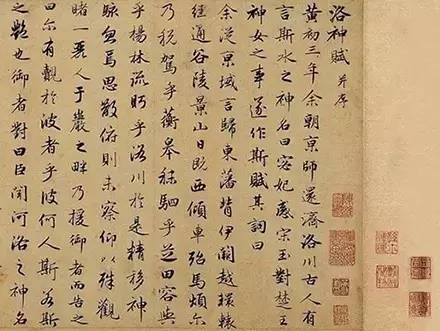 洛神賦 并序
黄初三年余朝京師還濟洛川古人有
言斯水之神名曰宓妃感宋玉對楚王
神女之事遂作斯賦其詞曰
余從京域言歸東藩背伊闕越轘轅
經通谷陵景山日既西傾車殆馬煩尔
乃税駕乎蘅皋秣駟乎芝田容與
乎楊林流眄乎洛川於是精移神
駭忽焉思散俯則未察仰以殊觀
睹一麗人于巖之畔乃援御者而告之
曰尔有覿於彼者乎彼何人斯若斯
之豔也御者對曰臣聞河洛之神名